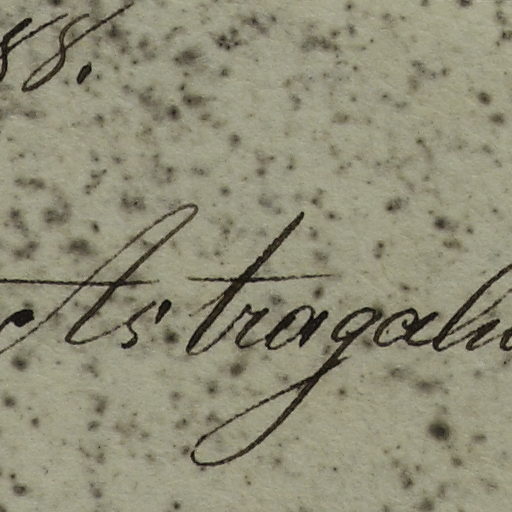 88.
Astragalu